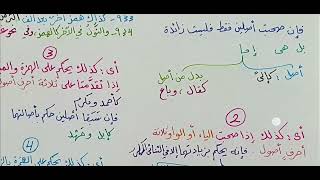 ٩٢٣- كذاك همز آخر بعد ألف
٩٢٤- والنون في الآخر كالهمز وفي
فإن صحبت أصلين فقط فليست زائدة
بل هي إما
أصل: كـ"إلى"
بدل من أصل
كقال، وباع
③
أي: كذلك يحكم على الهمزة والميم
إذا تقدمتا على ثلاثة أحرف أصول
كأحمد ومكرم
فإن سبقتا أصلين حكم بأصالتهما
كإبل ومهد
②
أي: كذلك إذا صحبت الياء أو الواو ثلاثة
أحرف أصول فإنه يحكم بزيادتهما إلا في الثنائي المكرر
④
أي: كذلك يحكم على الهمزة